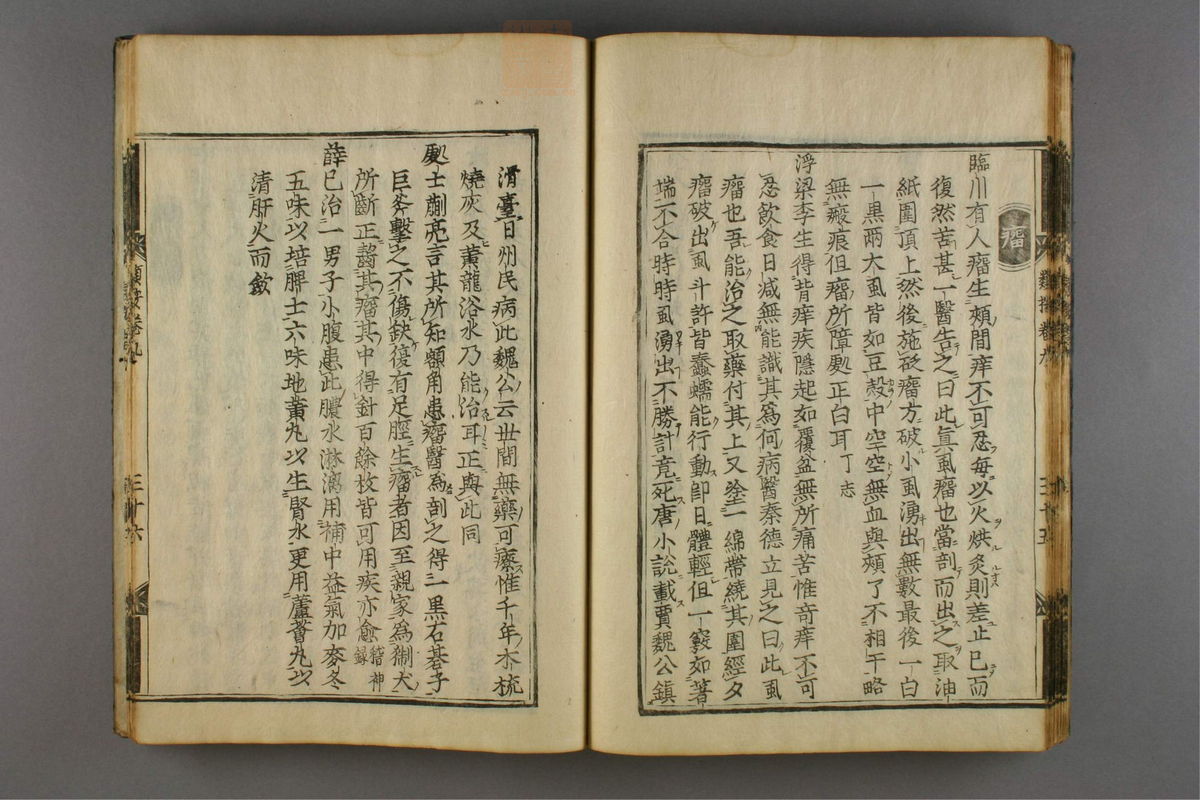 瘤
臨川有人瘤生頰間痒不可忍每以火烘灸則差止已而
復然苦甚一醫告之曰此眞虱瘤也當剖而出之取油
紙圍頂上然後施砭瘤方破小虱湧出無數最後一白
一黑兩大虱皆如豆殼中空空無血與頰了不相干略
無瘢痕但瘤所障處正白耳丁志
浮梁李生得背痒疾隱起如覆盆無所痛苦惟奇痒不可
忍飲食日减無能識其爲何病醫秦德立見之曰此虱
瘤也吾能治之取藥付其上又塗一綿帶繞其圍經夕
瘤破出虱斗許皆蠢蠕能行動卽日體輕但一竅如著
端不合時時虱湧出不勝計竟死唐小說載賈魏公鎮
類按卷九
三十五
滑臺日州民病此魏公云世間無藥可療惟千年木梳
燒灰及黃龍浴水乃能治耳正與此同
處士蒯亮言其所知額角患瘤醫爲剖之得一黑石碁子
巨斧擊之不傷缺復有足脛生瘤者因至親家爲猘犬
所斷正齧其瘤其中得針百餘枚皆可用疾亦愈稽神
錄
薛已治一男子小腹患此膿水淋漓用補中益氣加麥冬
五味以培脾土六味地黃丸以生腎水更用蘆薈丸以
清肝火而斂
類按卷九
三十六